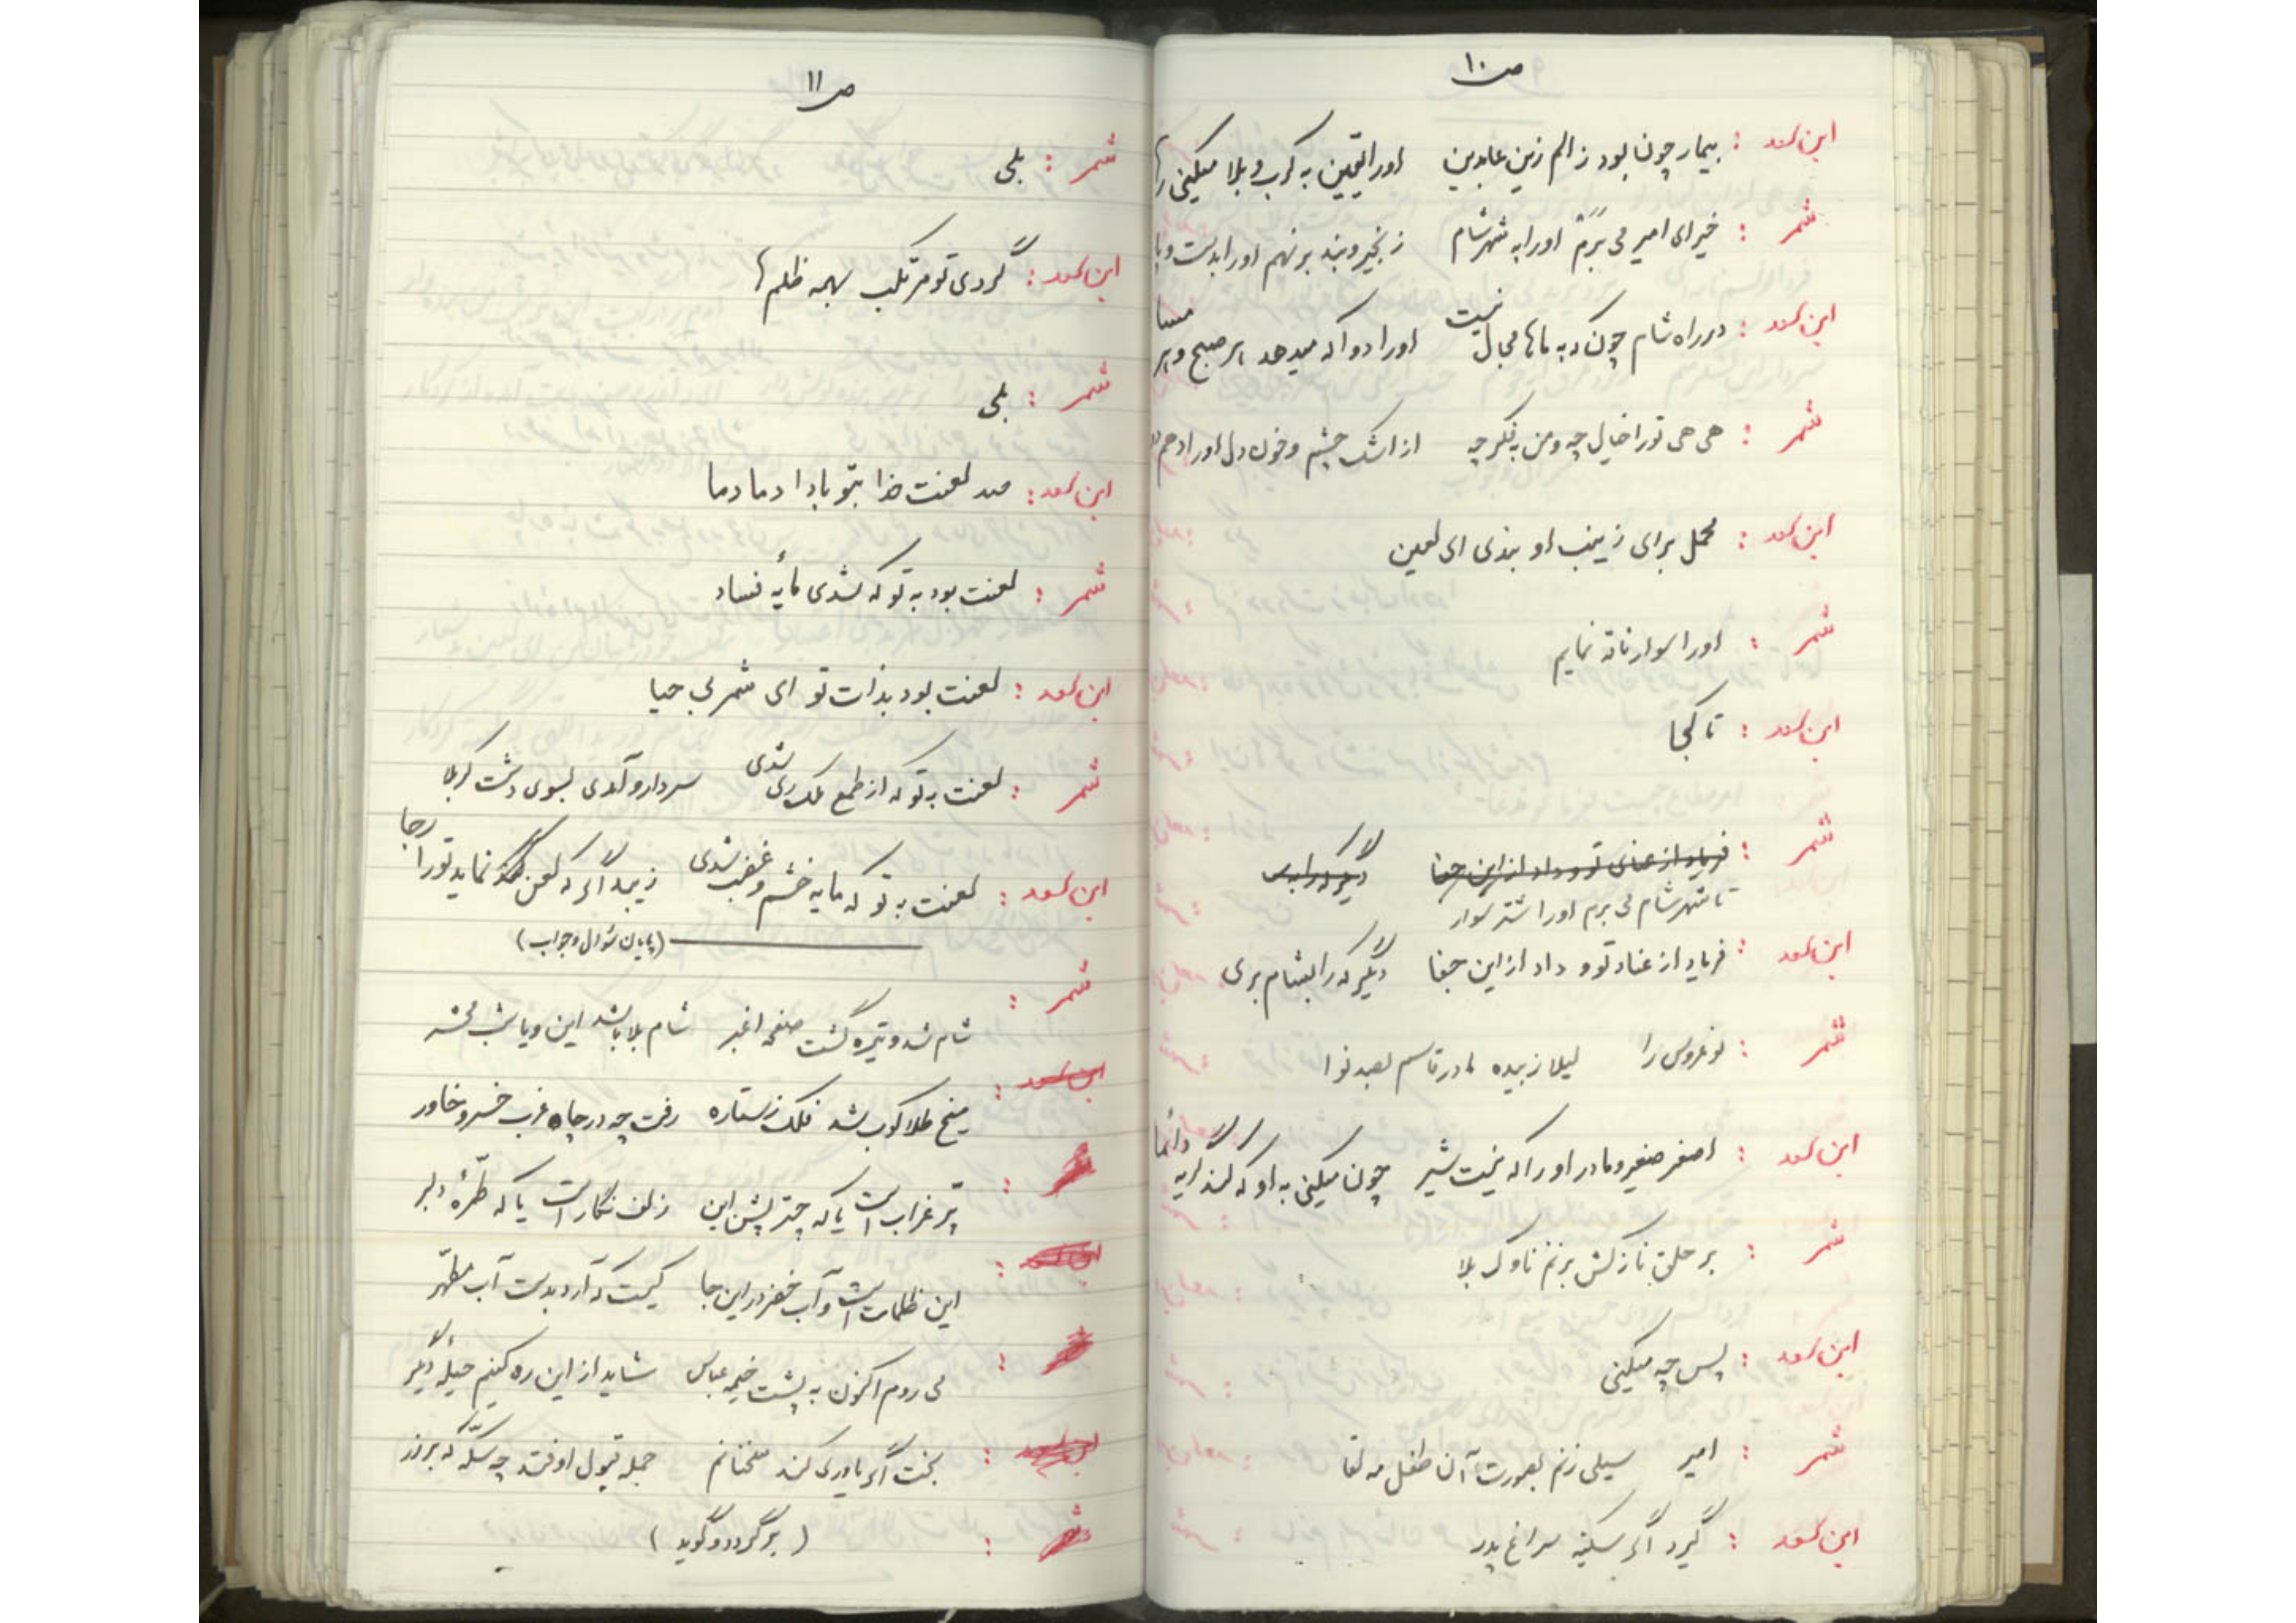 ص ۱۰
ابن سعد : بیمار چون بود ز الم زین عابدین اورا یقین به کرب و بلا میکنی رها
شمر : خیر ای امیر می برَمَش اورا به شهر شام زنجیر و بند بر نهم اورا بدست و پا
ابن سعد : در راه شام چونکه به ماها مجال نیست اورا دوا که میدهد هر صبح و هر مسا
شمر : هی هی تورا خیال چه و من به فکر چه از اشک چشم و خون دل اورا دهم
ابن سعد : محمل برای زینب او بندی ای لعین
شمر : اورا سوار ناقه نمایم
ابن سعد : تا کجا
شمر : فریاد از عناد تو و داد از این جفا دیگر که را
تا شهر شام می برم اورا شتر سوار
ابن سعد : فریاد از عناد تو و داد از این جفا دیگر که را بشام بری
شمر : نو عروس را لیلا زبیده مادر قاسم بصد نوا
ابن سعد : اصغر صغیر و مادر اورا که نیست شیر چون میکنی به او که کند گریه دائما
شمر : بر حلق نازکش بزنم ناوک بلا
ابن سعد : پس چه میکنی
شمر : امیر سیلی زنم بصورت آن طفل مه لقا
ابن سعد : گیرد اگر سکینه سراغ پدر
ص ۱۱
شمر : بلی
ابن سعد : گردی تو مرتکب بهمه ظلم ها
شمر : بلی
ابن سعد : صد لعنت خدا بتو بادا دما دما
شمر : لعنت بود به تو که شدی مأیه فساد
ابن سعد : لعنت بود بذات تو ای شمر بی حیا
شمر : لعنت به تو که از طمع ملک ری شدی سردار و آمدی بسوی دشت کربلا
ابن سعد : لعنت به تو که مایه خشم و غضب شدی زیبد اگر که لعن نماید تورا رجا
(پایان سئوال و جواب)
شمر : شام شد و تیره گشت صفحه اغبر شام بلا باشد این و یا شب محشر
ابن سعد : میخ طلا کوب شد فلک ز ستاره رفت چه در چاه غرب خسرو خاور
: پّر غراب است یا که چتر پشن این زلف نگار است یا که طّرۀ دلبر
ابن سعد : این ظلمات است و آب خضر در این جا کیست که آرد بدست آب مطّهر
: می روم اکنون به پشت خیمه عباس شاید از این ره کنیم حیلۀ دیگر
ابن سعد : بخت اگر یاوری کند سخنانم جمله قبول اوفتد چه سکّه که بر زر
شمر : ( برگردد و گوید )